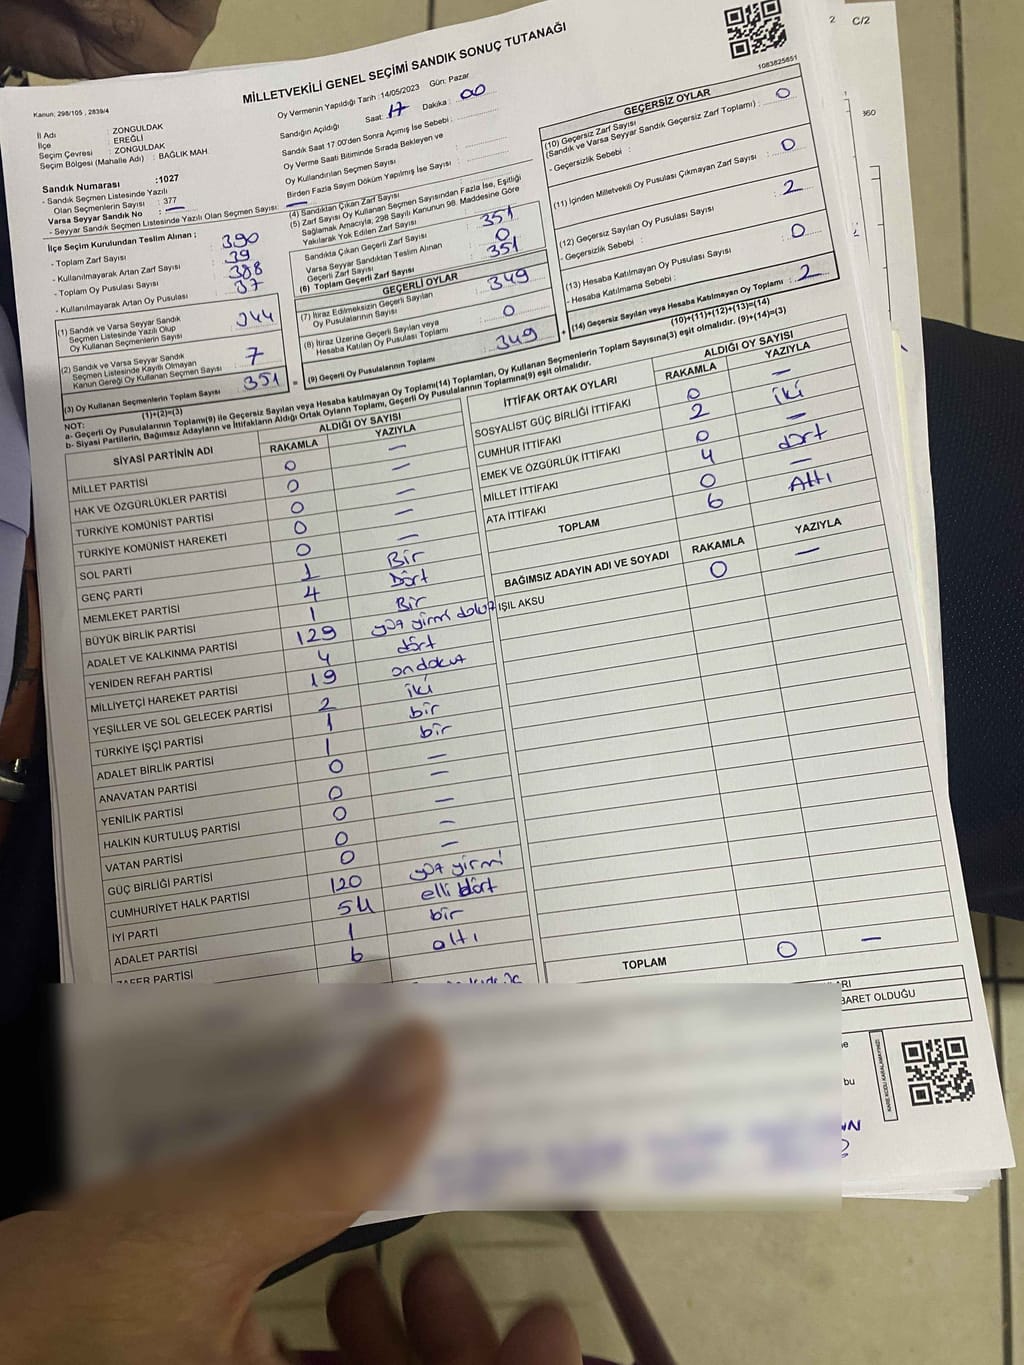 2 C/2
960
MİLLETVEKİLİ GENEL SEÇİMİ SANDIK SONUÇ TUTANAĞI
1083825651
Kanun; 298/105 , 2839/4
İl Adı : ZONGULDAK
İlçe : EREĞLİ
Seçim Çevresi : ZONGULDAK
Seçim Bölgesi (Mahalle Adı) : BAĞLIK MAH.
Sandık Numarası :1027
- Sandık Seçmen Listesinde Yazılı
Olan Seçmenlerin Sayısı : 377
Varsa Seyyar Sandık No : —
- Seyyar Sandık Seçmen Listesinde Yazılı Olan Seçmen Sayısı: —
Oy Vermenin Yapıldığı Tarih :14/05/2023 Gün: Pazar
Sandığın Açıldığı Saat: 17 Dakika : 00
Sandık Saat 17.00'den Sonra Açılmış İse Sebebi :
Oy Verme Saati Bitiminde Sırada Bekleyen ve
Oy Kullandırılan Seçmen Sayısı
Birden Fazla Sayım Döküm Yapılmış İse Sayısı :
İlçe Seçim Kurulundan Teslim Alınan ;
- Toplam Zarf Sayısı : 390
- Kullanılmayarak Artan Zarf Sayısı : 39
- Toplam Oy Pusulası Sayısı : 388
- Kullanılmayarak Artan Oy Pusulası : 37
(1) Sandık ve Varsa Seyyar Sandık
Seçmen Listesinde Yazılı Olup
Oy Kullanan Seçmenlerin Sayısı 344
(2) Sandık ve Varsa Seyyar Sandık
Seçmen Listesinde Kayıtlı Olmayan
Kanun Gereği Oy Kullanan Seçmen Sayısı 7
(3) Oy Kullanan Seçmenlerin Toplam Sayısı 351
(1)+(2)=(3)
(4) Sandıktan Çıkan Zarf Sayısı
(5) Zarf Sayısı Oy Kullanan Seçmen Sayısından Fazla İse, Eşitliği
Sağlamak Amacıyla, 298 Sayılı Kanunun 98. Maddesine Göre
Yakılarak Yok Edilen Zarf Sayısı
Sandıkta Çıkan Geçerli Zarf Sayısı 351
Varsa Seyyar Sandıktan Teslim Alınan
Geçerli Zarf Sayısı 0
(6) Toplam Geçerli Zarf Sayısı 351
GEÇERLİ OYLAR
(7) İtiraz Edilmeksizin Geçerli Sayılan
Oy Pusulalarının Sayısı 349
(8) İtiraz Üzerine Geçerli Sayılan veya
Hesaba Katılan Oy Pusulası Toplamı 0
(9) Geçerli Oy Pusulalarının Toplamı 349
GEÇERSİZ OYLAR
(10) Geçersiz Zarf Sayısı
(Sandık ve Varsa Seyyar Sandık Geçersiz Zarf Toplamı) : 0
- Geçersizlik Sebebi :
(11) İçinden Milletvekili Oy Pusulası Çıkmayan Zarf Sayısı : 0
(12) Geçersiz Sayılan Oy Pusulası Sayısı : 2
- Geçersizlik Sebebi :
(13) Hesaba Katılmayan Oy Pusulası Sayısı : 0
- Hesaba Katılmama Sebebi :
(14) Geçersiz Sayılan veya Hesaba Katılmayan Oy Toplamı : 2
(10)+(11)+(12)+(13)=(14)
NOT:
a- Geçerli Oy Pusulalarının Toplamı(9) ile Geçersiz Sayılan veya Hesaba katılmayan Oy Toplamı(14) Toplamları, Oy Kullanan Seçmenlerin Toplam Sayısına(3) eşit olmalıdır. (9)+(14)=(3)
b- Siyasi Partilerin, Bağımsız Adayların ve İttifakların Aldığı Ortak Oyların Toplamı, Geçerli Oy Pusulalarının Toplamına(9) eşit olmalıdır.
SİYASİ PARTİNİN ADI ALDIĞI OY SAYISI
RAKAMLA YAZIYLA
MİLLET PARTİSİ 0 —
HAK VE ÖZGÜRLÜKLER PARTİSİ 0 —
TÜRKİYE KOMÜNİST PARTİSİ 0 —
TÜRKİYE KOMÜNİST HAREKETİ 0 —
SOL PARTİ 0 —
GENÇ PARTİ 1 Bir
MEMLEKET PARTİSİ 4 Dört
BÜYÜK BİRLİK PARTİSİ 1 Bir
ADALET VE KALKINMA PARTİSİ 129 yüz yirmi dokuz
YENİDEN REFAH PARTİSİ 4 dört
MİLLİYETÇİ HAREKET PARTİSİ 19 ondokuz
YEŞİLLER VE SOL GELECEK PARTİSİ 2 iki
TÜRKİYE İŞÇİ PARTİSİ 1 bir
ADALET BİRLİK PARTİSİ 1 bir
ANAVATAN PARTİSİ 0 —
YENİLİK PARTİSİ 0 —
HALKIN KURTULUŞ PARTİSİ 0 —
VATAN PARTİSİ 0 —
GÜÇ BİRLİĞİ PARTİSİ 0 —
CUMHURİYET HALK PARTİSİ 120 yüz yirmi
İYİ PARTİ 54 elli dört
ADALET PARTİSİ 1 bir
ZAFER PARTİSİ 6 altı
İTTİFAK ORTAK OYLARI ALDIĞI OY SAYISI
RAKAMLA YAZIYLA
SOSYALİST GÜÇ BİRLİĞİ İTTİFAKI 0 —
CUMHUR İTTİFAKI 2 iki
EMEK VE ÖZGÜRLÜK İTTİFAKI 0 —
MİLLET İTTİFAKI 4 dört
ATA İTTİFAKI 0 —
TOPLAM 6 Altı
BAĞIMSIZ ADAYIN ADI VE SOYADI RAKAMLA YAZIYLA
IŞIL AKSU 0 —
TOPLAM 0 —
BARET OLDUĞU
bu
KARE KODU KARALAMAYINIZ!